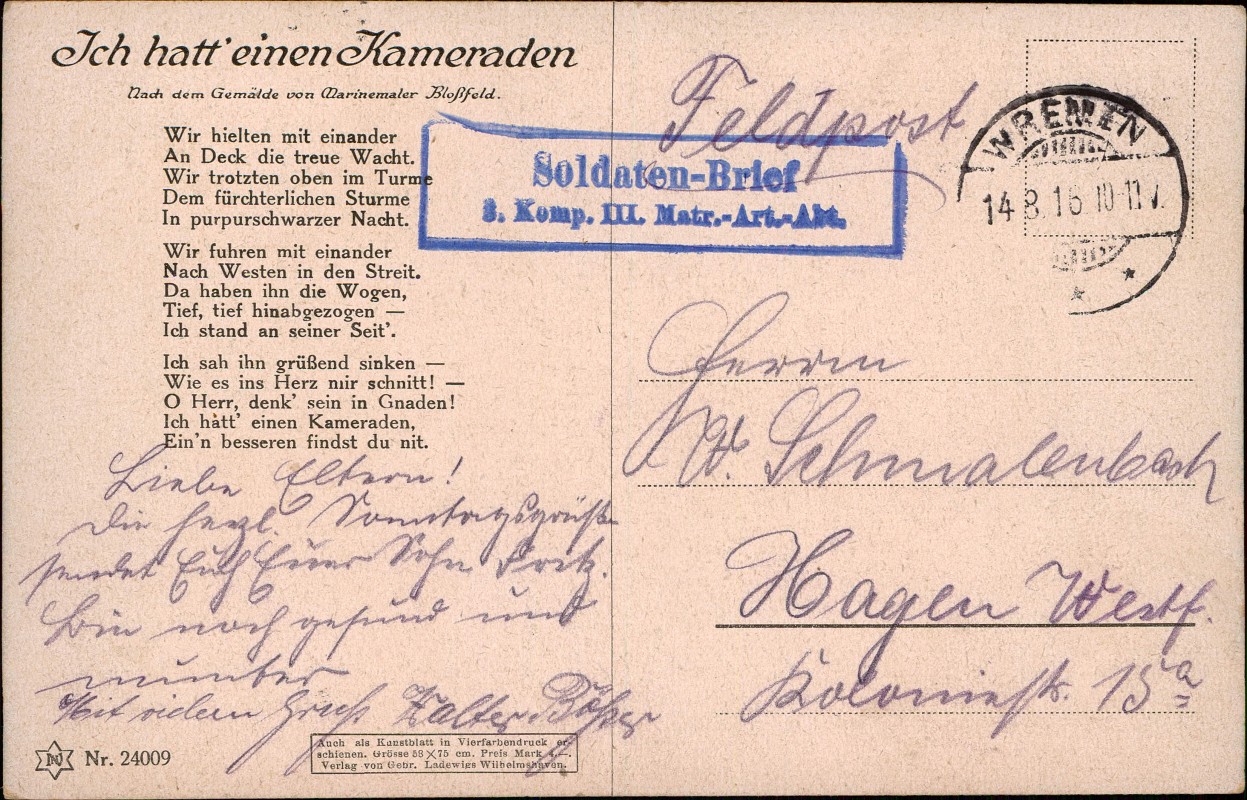 Ich hatt' einen Kameraden
Nach dem Gemälde von Marinemaler Bloßfeld.
Wir hielten mit einander
An Deck die treue Wacht.
Wir trotzten oben im Turme
Dem fürchterlichen Sturme
In purpurschwarzer Nacht.
Wir fuhren mit einander
Nach Westen in den Streit.
Da haben ihn die Wogen,
Tief, tief hinabgezogen —
Ich stand an seiner Seit'.
Ich sah ihn grüßend sinken —
Wie es ins Herz mir schnitt! —
O Herr, denk' sein in Gnaden!
Ich hàtt' einen Kameraden,
Ein'n besseren findst du nit.
Liebe Eltern!
Die herzl. Sonntagsgrüße
sendet Euch Euer Sohn Fritz.
Bin noch gesund und
munter
Mit vielem Gruß Walter
Nr. 24009
Auch als Kunstblatt in Vierfarbendruck er-
schienen. Grösse 58×75 cm. Preis Mark
Verlag von Gebr. Ladewigs Wilhelmshaven.
Feldpost
Soldaten-Brief
3. Komp. III. Matr.-Art.-Abt.
WREMEN
14.8.16 10-11V.
Herrn
W. Schmalenbach
Hagen Westf.
Koloniestr. 15a